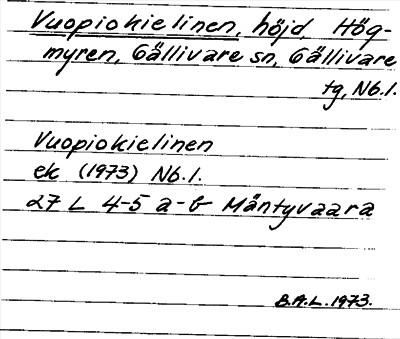 Vuopiokielinen, höjd Hög-
myren, Gällivare sn, Gällivare
tg, Nb.l.
Vuopiokielinen
ek (1973) Nb.l.
27 L 4-5 a-b Mäntyvaara
B.A.L. 1973.